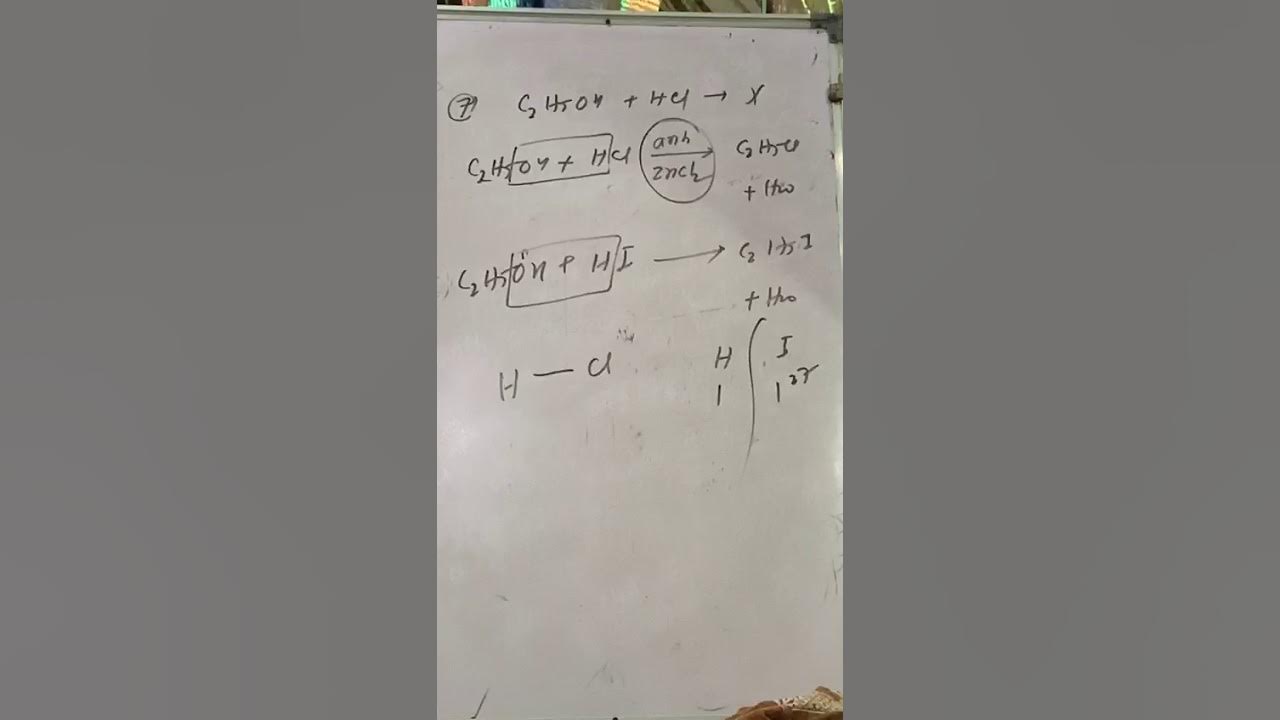 7 C2H5OH + HCl → X
C2H5OH + HCl anh C2H5Cl
ZnCl2 + H2O
C2H5OH + HI ⟶ C2H5I
+ H2O
H — Cl H I
1 127